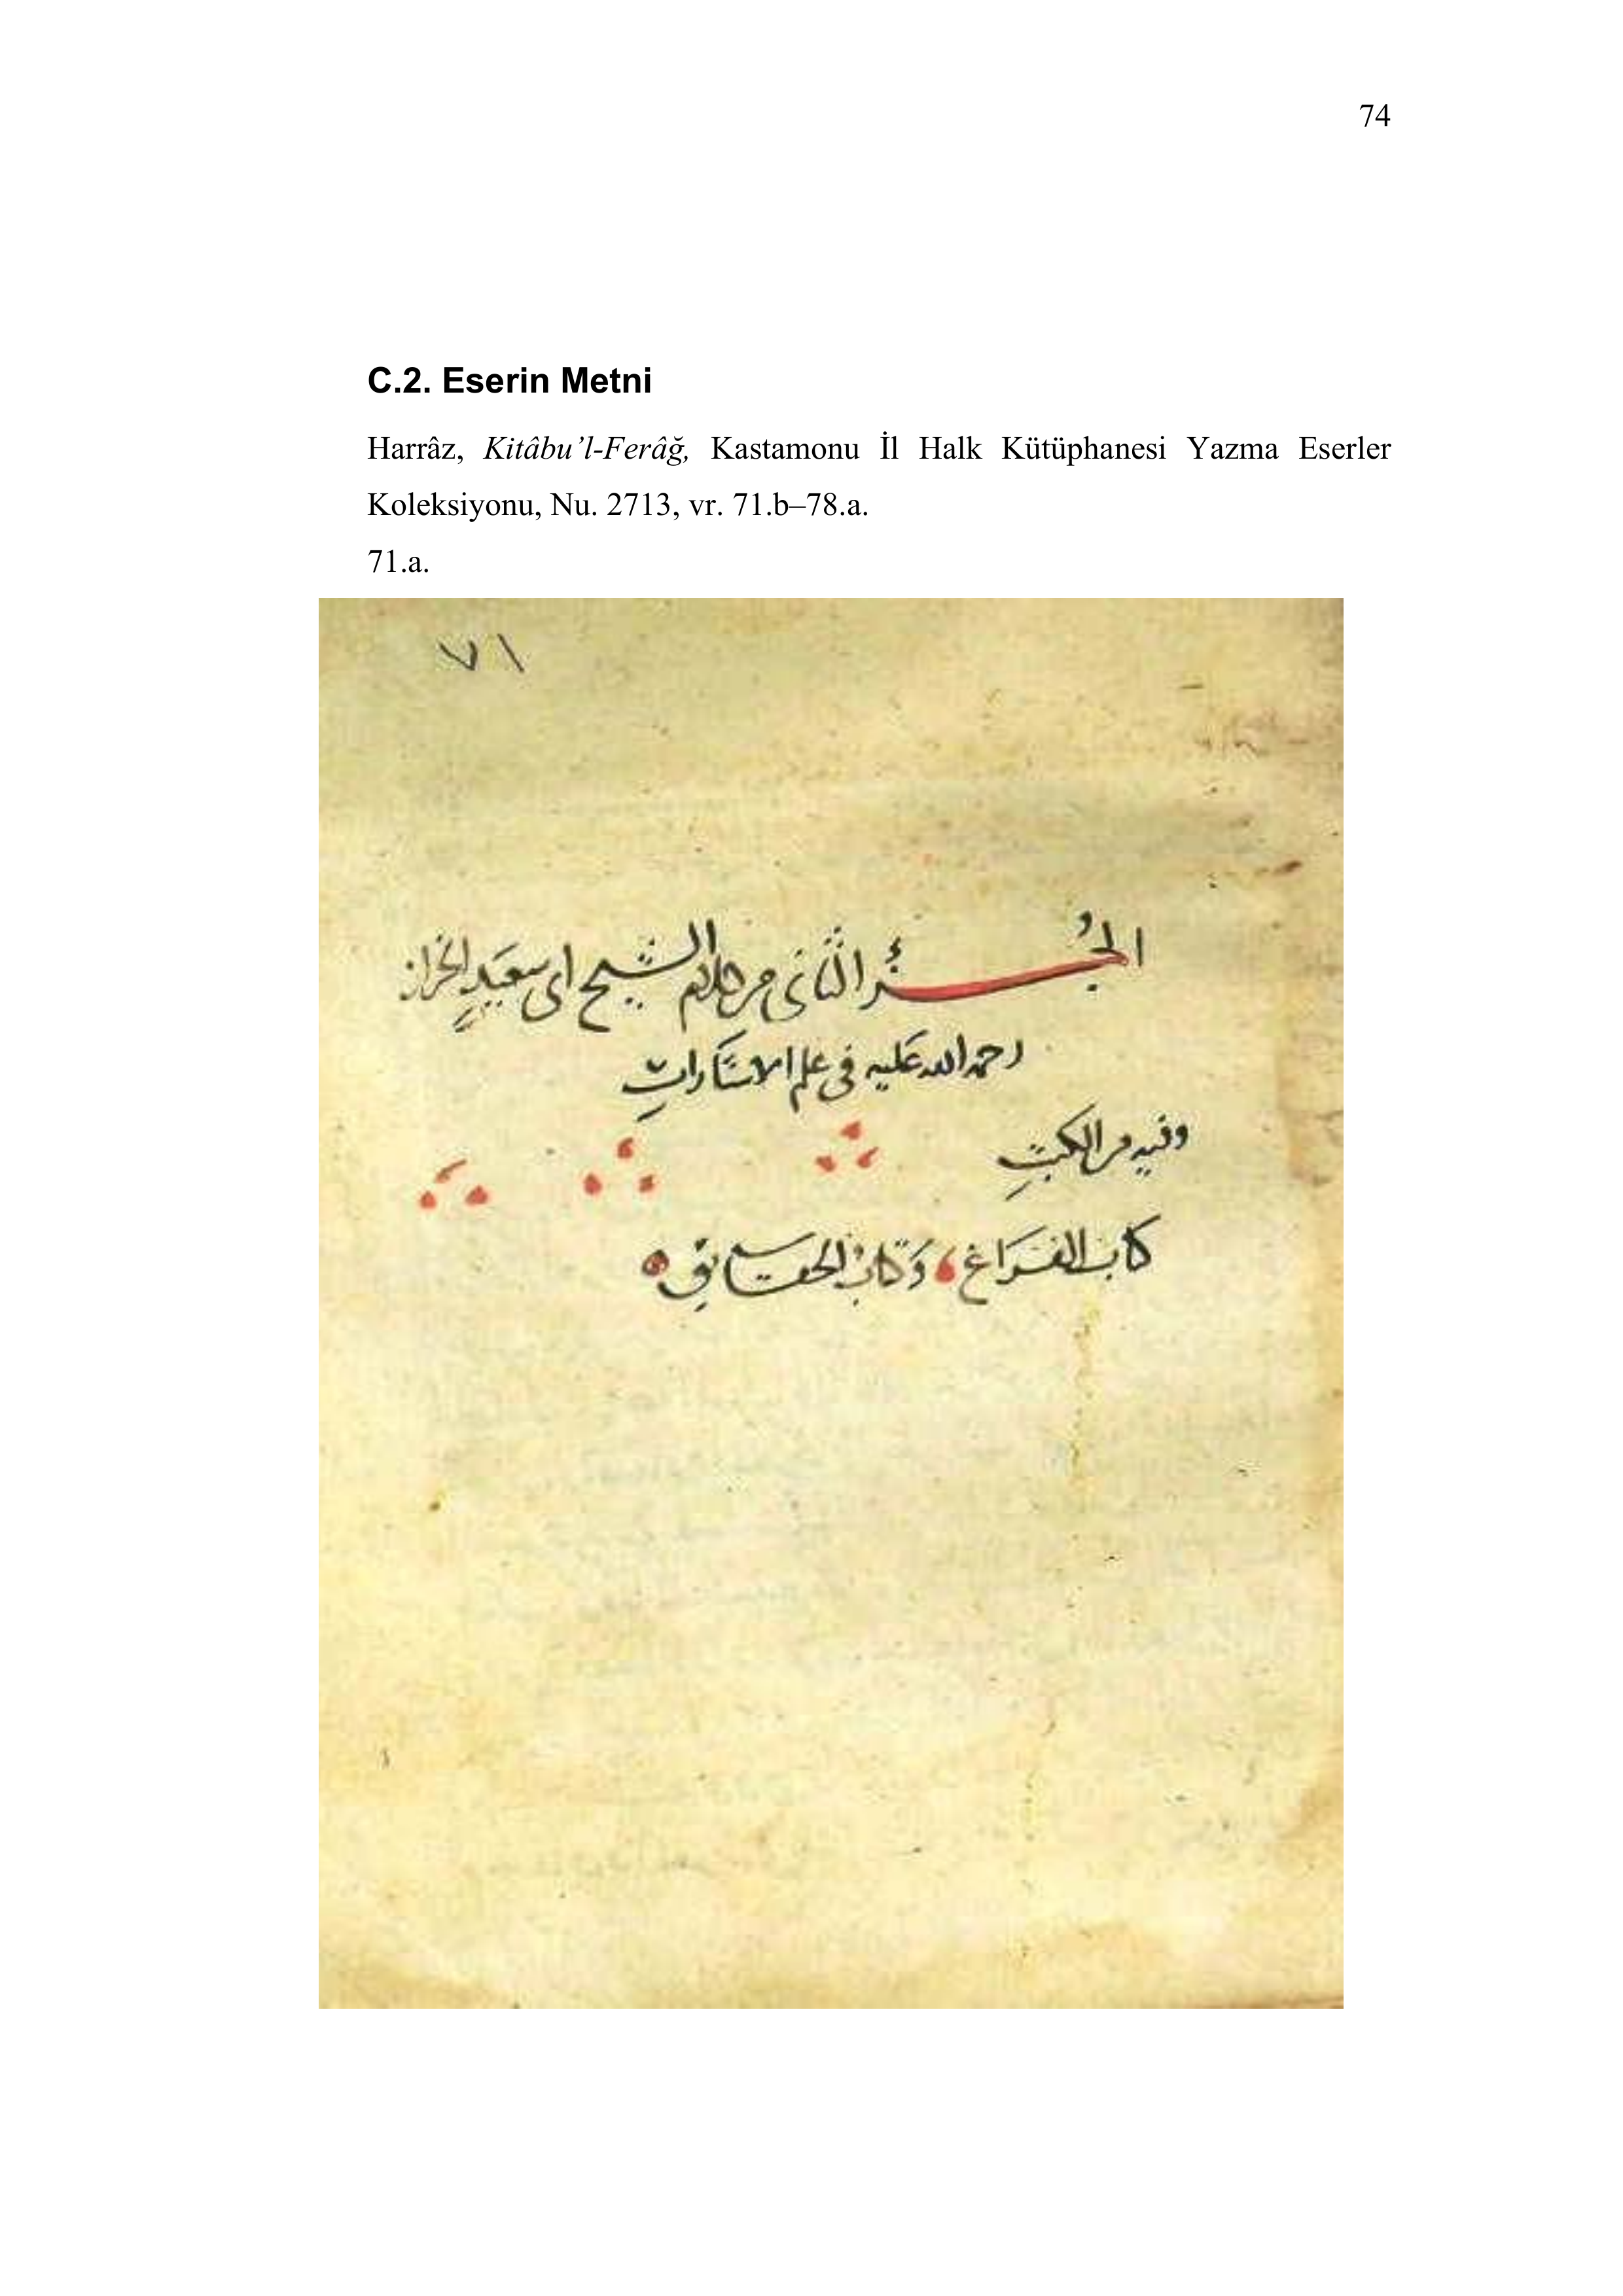 74
C.2. Eserin Metni
Harrâz, Kitâbu’l-Ferâğ, Kastamonu İl Halk Kütüphanesi Yazma Eserler
Koleksiyonu, Nu. 2713, vr. 71.b–78.a.
71.a.
٧١
الجُزءُ الثَّانى من كلام الشيخ ابى سعَيدٍ الخراز
رحمة الله عَليه فى علم الاشَارَاتِ
وفيه من الكتبِ
كتاب الفَرَاغ وَكتابُ الحقَايقِ